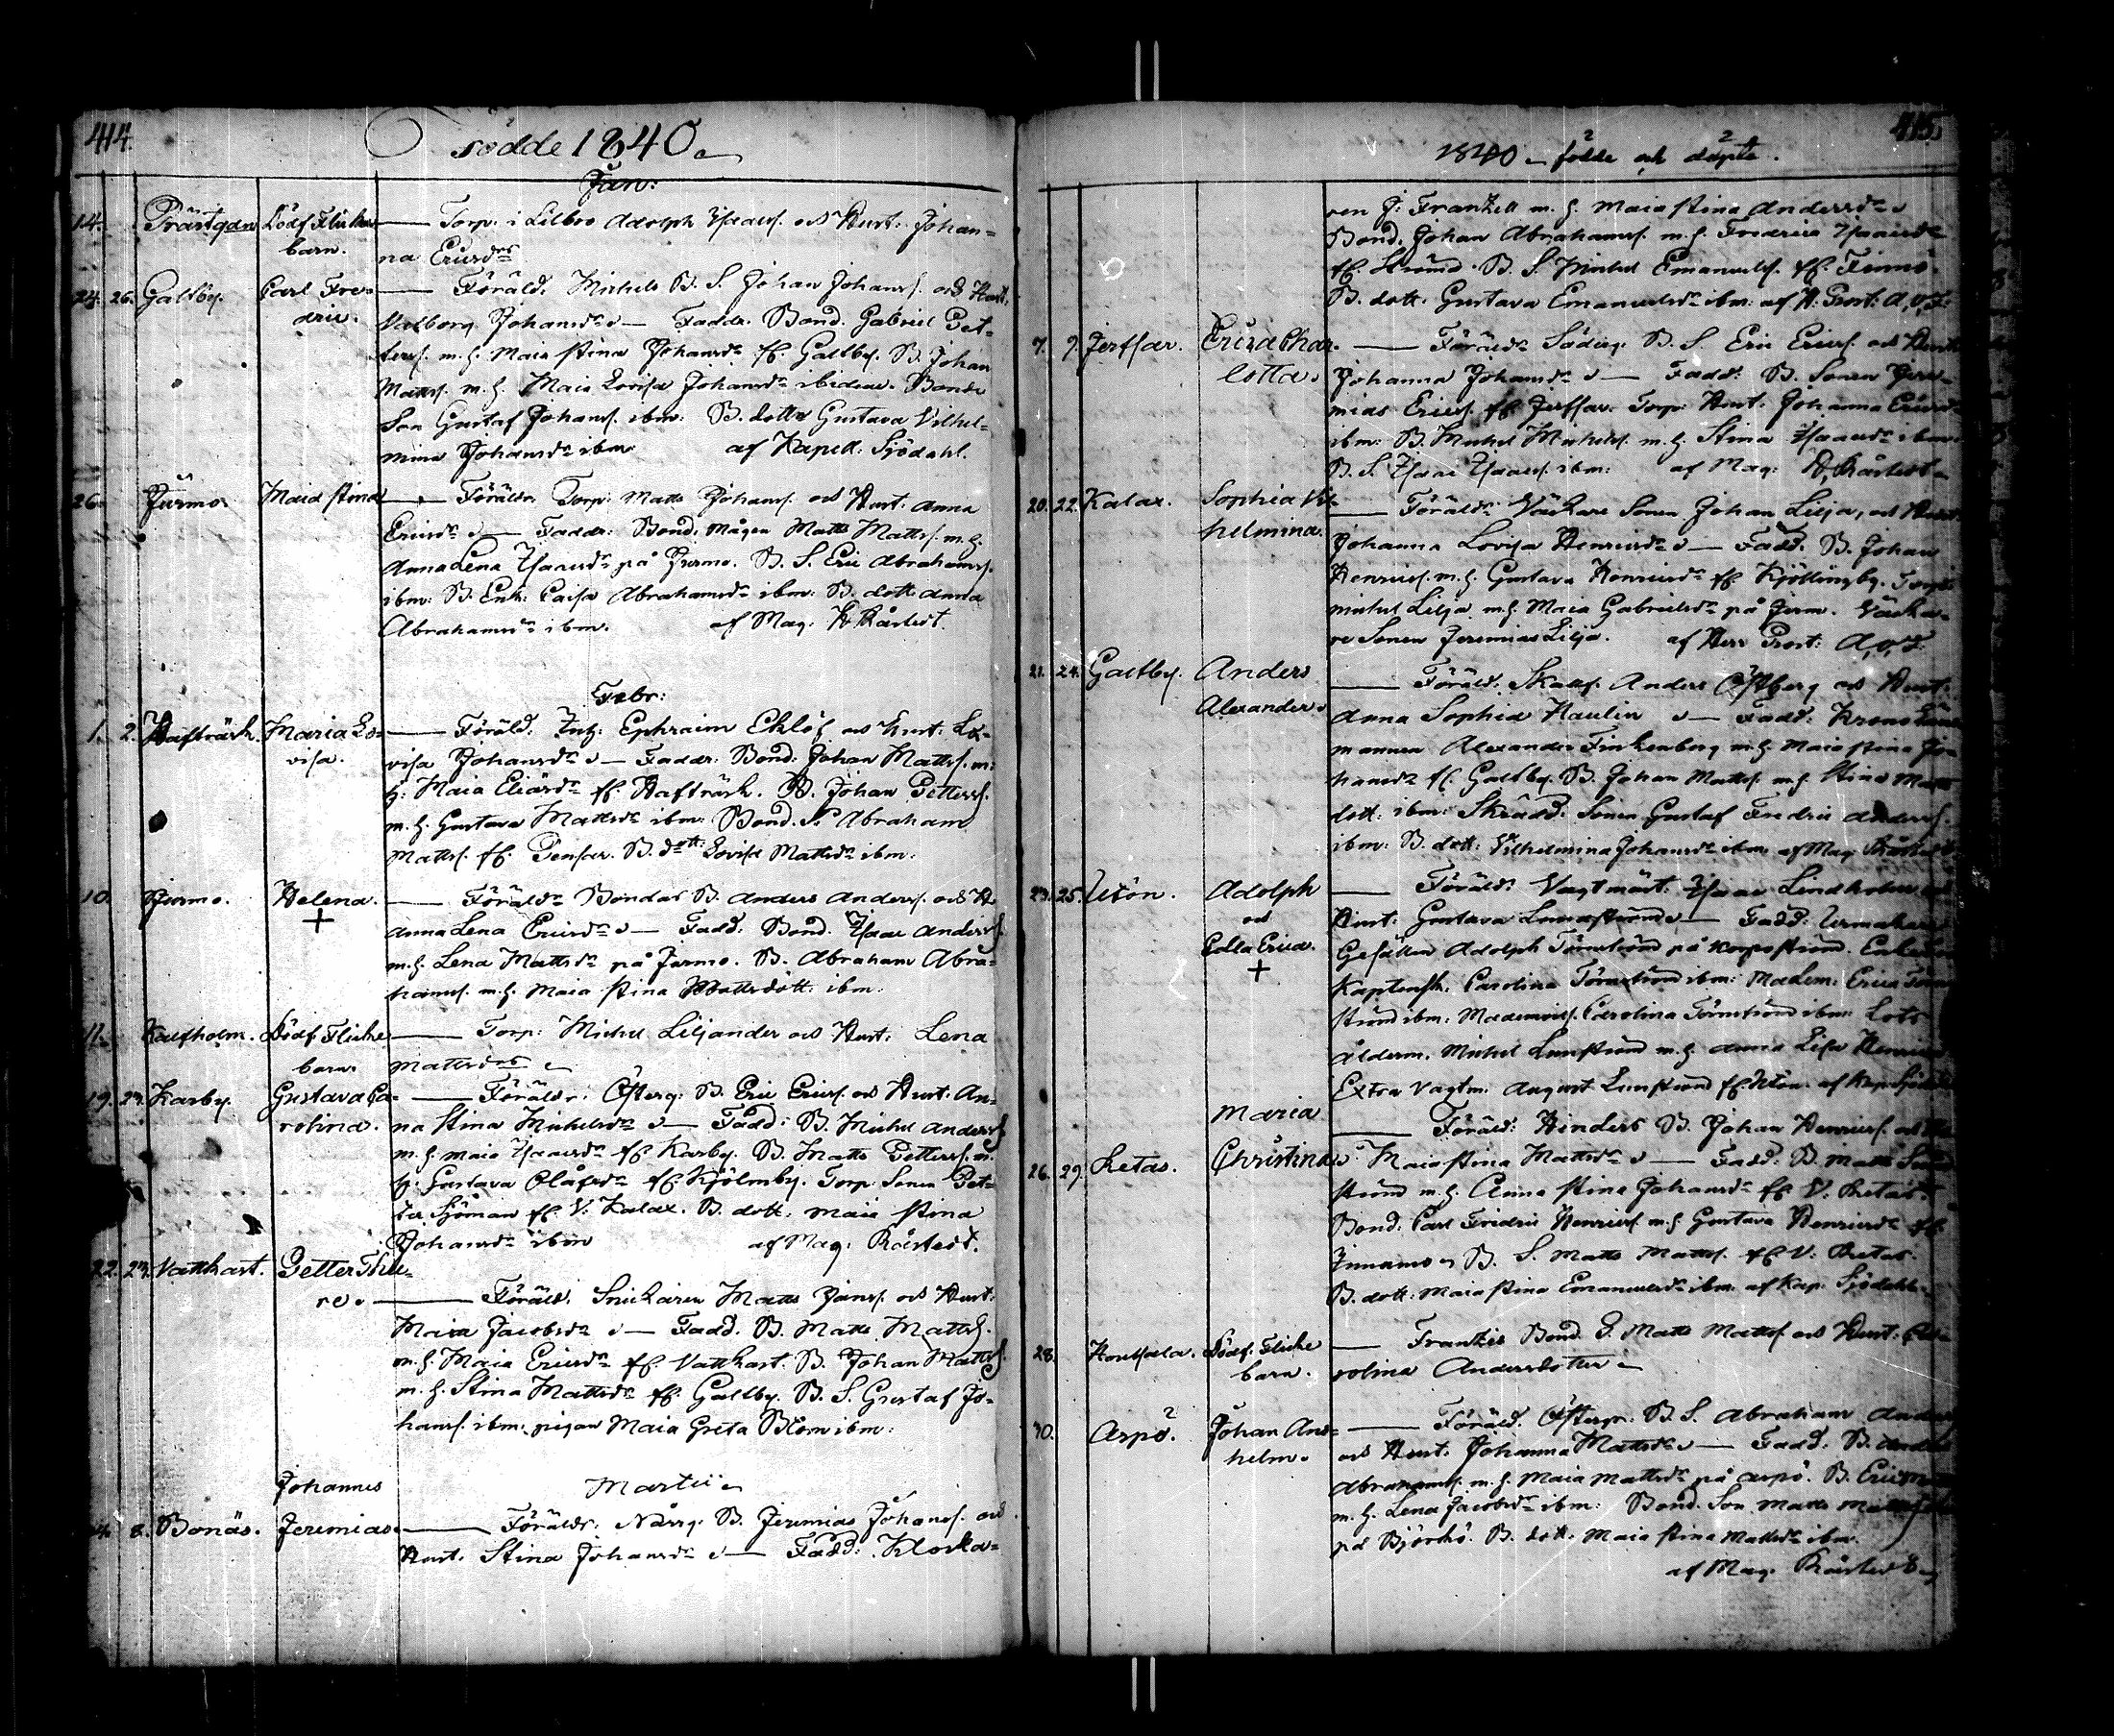 414.
Födde 1840.
Jan:
14. Prästgdn Dödf. Flicke — Torp. i Lillbro Adolph Isaacss. och Hust. Johan-
barn. na Ericsdr
24. 26. Galtby. Carl Fre- — Föräld. Michels B. S. Johan Johanss. och Hust.
dric. Valborg Johansdr — Faddr. Bond. Gabriel Pet-
terss. m. h. Maia Stina Johansdr fr. Galtby. B. Johan
Mattss. m. h. Maia Lovisa Johansdr ibidem. Bonde
Son Gustaf Johanss. ibm: B. dottr Gustava Vilhel-
mina Johansdr ibm af Kapell: Sjödahl.
26. Jurmo. Maia Stina — Föräldr. Torp: Matts Johanss. och Hust. Anna
Ericsdr — Faddr: Bond. Mågen Matts Mattss. m. h.
Anna Lena Isaacsdr på Jurmo. B. S. Eric Abrahamss.
ibm: B. Enk: Caisa Abrahamsdr ibm: B. dott: Anna
Abrahamsdr ibm. af Mag: Råstedt.
Febr:
1. 2. Hafträsk. Maria Lo- — Föräld. Inh: Ephraim Eklöf och Hust. Lo-
visa. visa Johansdr — Faddr: Bond: Johan Mattss. m:
h: Maia fr. Hafträsk. B. Johan Petterss.
m. h. Gustava Mattsdr ibm: Bond. S. Abraham
Mattss. fr. Pensar. B. dott: Lovisa Mattsdr ibm:
10. Jurmo. Helena. — Föräldr Bondas B. Anders Anderss. och H.
+ Anna Lena Ericsdr — Fadd: Bond. Isaac Anderss.
m. h. Lena Mattsdr på Jurmo. B. Abraham Abra-
hamss. m. h. Maia Stina Mattsdott: ibm.
11. Kalfholm. Dödf. Flicke — Torp: Michel Liljander och Hust: Lena
barn. Mattsdr
19. 23. Karby. Gustava Ca- — Föräldr: Österg: B. Eric Ericss. och Hust. An-
rolina. na Stina Michelsdr — Fadd: B. Michel Anderss.
m. h. Maia Isaacsdr fr. Karby. B. Matts Petterss. m.
h. Gustava Olafsdr fr. Kjölmby. Torp Sonen Pet-
ter Sjöman fr. V. Kalax. B. dott. Maia Stina
Johansdr ibm af Mag: Råstedt.
22. 23. Vattkast. Petter Thu-
re. — Föräld. Snickaren Matts Janss. och Hust:
Maia Jacobsdr — Fadd. B. Matts Mattss.
m. h. Maia Ericsdr fr. Vattkast. B. Johan Mattss.
m. h. Stina Mattsdr fr. Galtby. B. S. Gustaf Jo-
hanss. ibm: pigan Maia Greta Blom ibm:
Martii
Johannes
4. 8. Bonäs. Jeremias. — Föräldr: Norrg: B. Jeremias Johanss. och
Hust. Stina Johansdr — Fadd: Klocka-
415.
1840 födde och döpte.
ren J: Franzell m. h. Maia Stina Andersdr
Bond. Johan Abrahamss. m. h. Fredrica Isaacsdr
fr. Strömd. B. S. Michel Emanuelss. fr. Finnö.
B. dott. Gustava Emanuelsdr ibm: af H. Prost:
7. 9. Jertsar. Erica Char- — Föräldr Söderg. B. S. Eric Ericss. och Hust.
lotta. Johanna Johansdr — Fadd: B. Sonen Jere-
mias Ericss. fr. Jertsar. Torp Hust. Johanna Ericsd
ibm: B. Michel Michelss. m. h. Stina Isaacsdr ibm.
B. S. Isaac Isaacss. ibm: af Mag: Råstedt
20. 22. Kalax. Sophia Vil- — Föräldr: Väckare Sonen Johan Lilja, och Hust.
helmina. Johanna Lovisa Henricsdr — Fadd. B. Johan
Henricss. m. h. Gustava Henricsdr fr. Kjöttingby. Torp.
Michel Lilja m. h. Maia Gabrielsdr på Jurm. Väcka-
re Sonen Jeremias Lilja. af Herr Prost:
21. 24. Galtby. Anders — Föräld. Skallf. Anders Östberg och Hust:
Alexander. Anna Sophia Haulin — Fadd: Krono Läns
mannen Alexander Finkenberg m. h. Maia Stina Jo-
hansdr fr. Galtby. B. Johan Mattss. m. h. Stina Matts
dott. ibm: Skrädd: Sonen Gustaf Fredric Anderss.
ibm: B. dott: Vilhelmina Johansdr ibm: af Mag Råstedt
23. 25. Utön. Adolph — Föräld: Vagtmäst. Isaac Lindholm och
och Hust: Gustava Lunnström — Fadd: Urmakare
Calla Erica. Gesällen Adolph Törnström på Korpoström. Enke
+ Kaptensk. Carolina Törnström ibm: Madem: Erica Törn
ström ibm: Mademois. Carolina Törnström ibm: Lots
ålderm. Michel Lunström m. h. Anna Lisa Henrics
Extra Vagtm. August Lunström fr. Utön. af Kap. Sjödahl
Maria — Föräld: Hinders B. Johan Henricss. och Hu
26. 29. Retas. Christina. Maia Stina Mattsdr — Fadd: B. Matts
ström m. h. Anna Stina Johansdr fr. V. Retas.
Bond. Carl Fredric Henricss. m. h. Gustava Henricsdr fr.
Innamo B. S. Matts Mattss. fr. V. Retas.
B. dott: Maia Stina Emanuelsdr ibm. af Kap. Sjödahl.
28. Dödf. Flicke — Frankis Bond. S. Matts Mattss. och Hust: Ca-
barn. rolina Andersdotter
30. Aspö. Johan Ans- — Föräld. Österg: B. S. Abraham Anders
helm. och Hust: Johanna Mattsdr — Fadd. B. Anders
Abrahamss. m. h. Maia Mattsdr på Aspö. B. Eric
m. h. Lena Jacobsdr ibm: Bond. Son Matts Mattss
på Björkö. B. dott. Maia Stina Mattsdr ibm.
af Mag. Råstedt